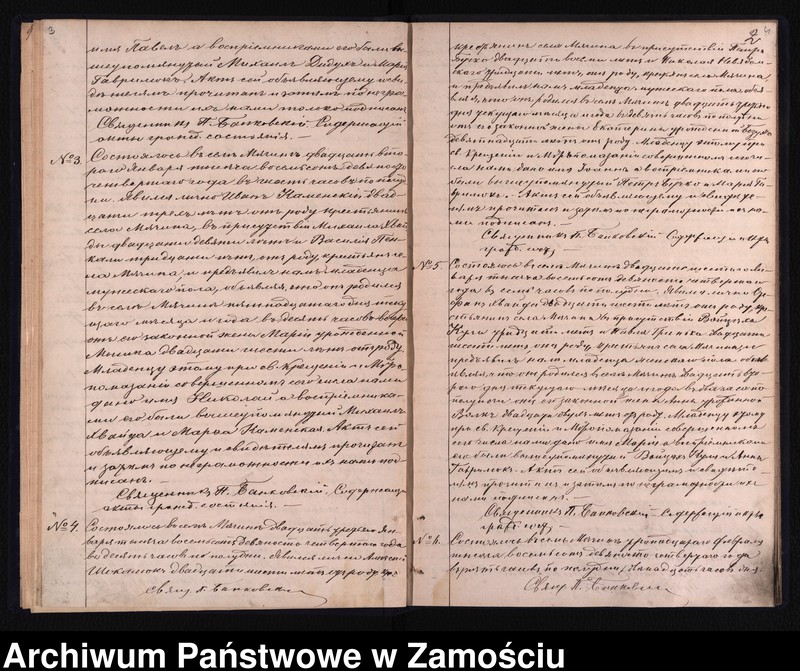 3
имя Павелъ а воспріемниками его были вы
шеупомянутый Михаилъ Дидухъ и Марія
Гаврилюкъ. Актъ сей объявляющему и сви
дѣтелямъ прочитанъ и затѣмъ по негра
мотности ихъ нами только подписанъ
Священникъ П. Банковскій. Содержащій
акты гражд. состоянія. —
№ 3. Состоялось въ селѣ Мячинѣ двадцать вто
раго Января тысяча восемьсотъ девяносто
четвертаго года въ шесть часовъ по полу
дни. Явился лично Иванъ Каменскій двад
цати трехъ лѣтъ отъ роду крестьянинъ
села Мячина, въ присутствіи Михаила
двадцати девяти лѣтъ и Василія
тридцати лѣтъ, отъ роду, крестьянъ се
ла Мячина, и предъявилъ намъ младенца
мужескаго пола, объявляя, что онъ родился
въ селѣ Мячинѣ пятнадцатаго дня теку
щаго мѣсяца и года въ десять часовъ вечера
отъ его законной жены Маріи урожденной
двадцати шести лѣтъ отъ роду.
Младенцу этому при св. Крещеніи и Мѵро
помазаніи совершенномъ сего числа нами
дано имя Николай а воспріемника
ми его были вышеупомянутый Михаилъ
и Марѳа Каменская. Актъ сей
объявляющему и свидѣтелямъ прочитанъ
и затѣмъ по неграмотности ихъ нами под
писанъ. —
Священникъ П. Банковскій. Содержащій
акты гражд. состоянія. —
№ 4. Состоялось въ селѣ Мячинѣ двадцать третьяго Ян
варя тысяча восемьсотъ девяносто четвертаго года
въ десять часовъ по полудни. Явился лично
двадцати шести лѣтъ отъ роду кре
Свящ. П. Банковскій
2
стьянинъ села Мячина въ присутствіи Петра
двадцати восьми лѣтъ и Николая
тридцати лѣтъ, отъ роду, крестьянъ села Мячина,
и предъявилъ намъ младенца мужескаго пола объя
вляя, что онъ родился въ селѣ Мячинѣ двадцать
дня текущаго мѣсяца и года въ девять часовъ по полудни
отъ его законной жены Екатерины урожденной
девятнадцати лѣтъ отъ роду. Младенцу этому при
св. Крещеніи и Мѵропомазаніи совершенномъ сего чи
сла нами дано имя Іоаннъ а воспріемниками его
были вышеупомянутый Петръ и Марія Га
врилюкъ. Актъ сей объявляющему и свидѣте
лямъ прочитанъ и затѣмъ по неграмотности ихъ на
ми подписанъ. —
Священникъ П. Банковскій Содержащій акты
гражд. сост. —
№ 5. Состоялось въ селѣ Мячинѣ двадцать шестаго Ян
варя тысяча восемьсотъ девяносто четвертаго
года въ семь часовъ по полудни. Явился лично
двадцати шести лѣтъ отъ роду, кре
стьянинъ села Мячина въ присутствіи
тридцати лѣтъ и Павла двадцати
шести лѣтъ, отъ роду, крестьянъ села Мячина, и
предъявилъ намъ младенца женскаго пола объя
вляя, что онъ родился въ селѣ Мячинѣ двадцать вто
рого дня текущаго мѣсяца и года въ два часа по
полудни отъ его законной жены Анны урожденной
Волкъ двадцати двухъ лѣтъ отъ роду. Младенцу этому
при св. Крещеніи и Мѵропомазаніи совершенномъ
сего числа нами дано имя Марія а воспріемниками
его были вышеупомянутый и Анна
Гаврилюкъ. Актъ сей объявляющему и свидѣте
лямъ прочитанъ и затѣмъ по неграмотности ихъ
нами подписанъ. —
Священникъ П. Банковскій Содержащій акты
гражд. сост. —
№ 6. Состоялось въ селѣ Мячинѣ тринадцатаго Февраля
тысяча восемьсотъ девяносто четвертаго года
Свящ. П. Банковскій
Archiwum Państwowe w Zamościu